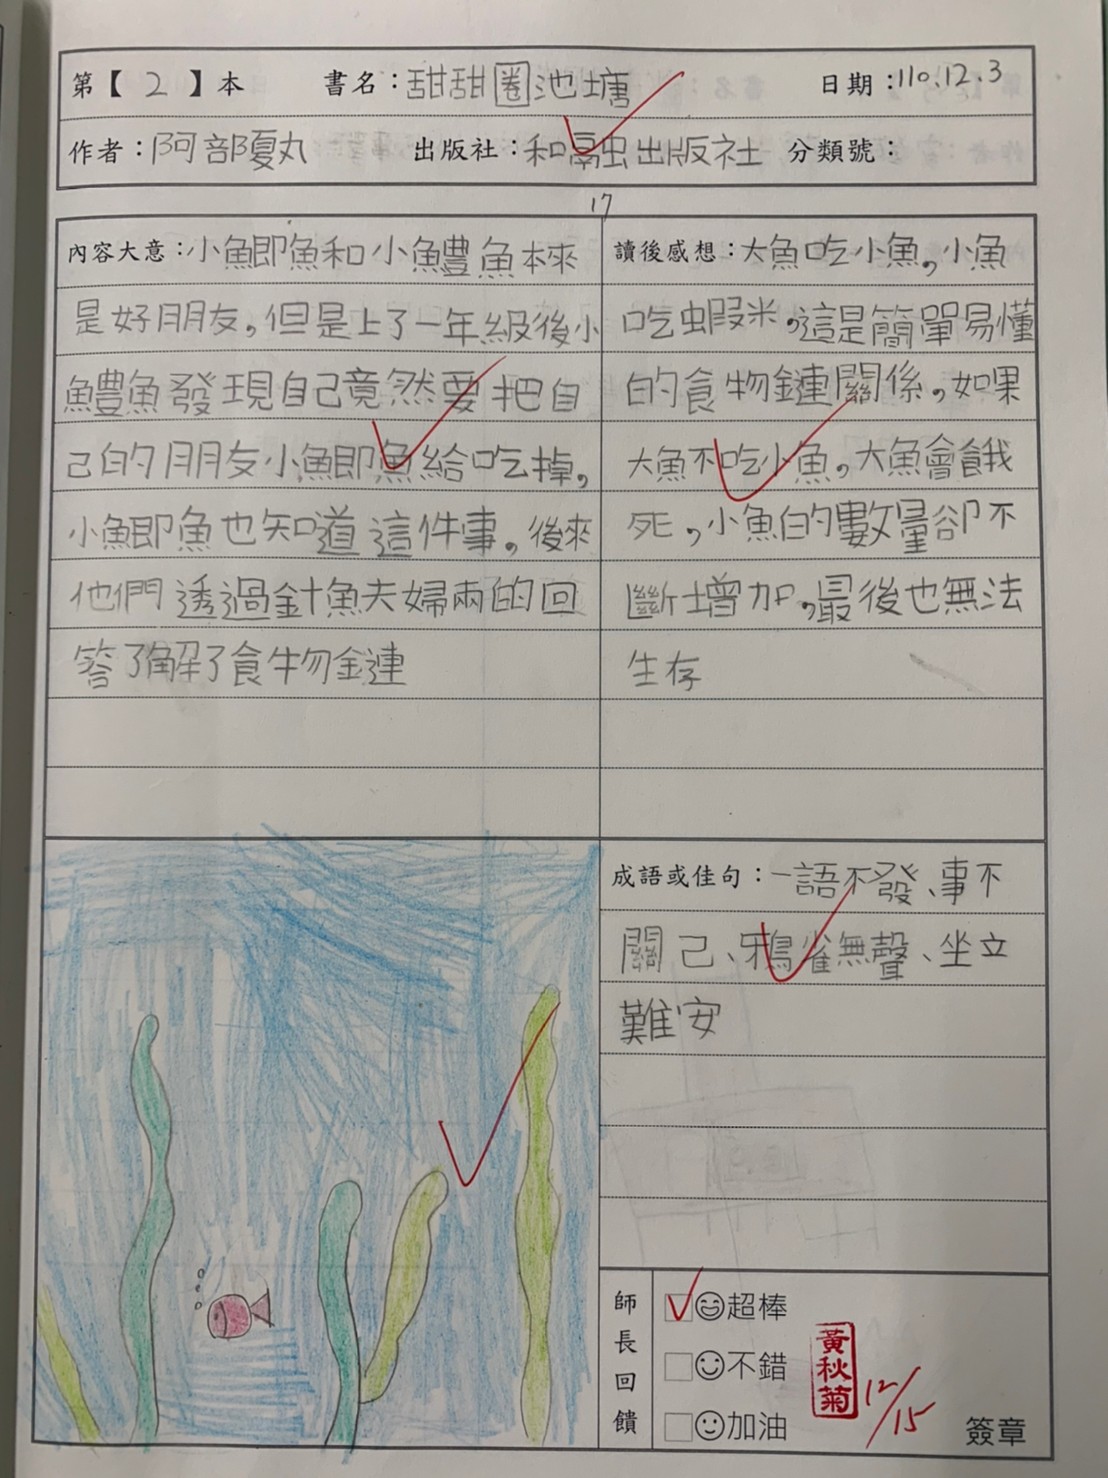 第【 2 】本 書名：甜甜圈池塘 日期：110.12.3
作者：阿部夏丸 出版社：和融出版社 分類號：
17
內容大意：小鯽魚和小鱧魚本來
是好朋友，但是上了一年級後小
鱧魚發現自己竟然要把自
己的朋友小鯽魚給吃掉，
小鯽魚也知道這件事。後來
他們透過針魚夫婦兩的回
答了解了食物鏈
讀後感想：大魚吃小魚，小魚
吃蝦米，這是簡單易懂
的食物鏈關係，如果
大魚不吃小魚，大魚會餓
死，小魚的數量卻不
斷增加，最後也無法
生存
成語或佳句：一語不發、事不
關己、鴉雀無聲、坐立
難安
師長回饋
超棒
不錯
加油
黃秋菊
12/15
簽章